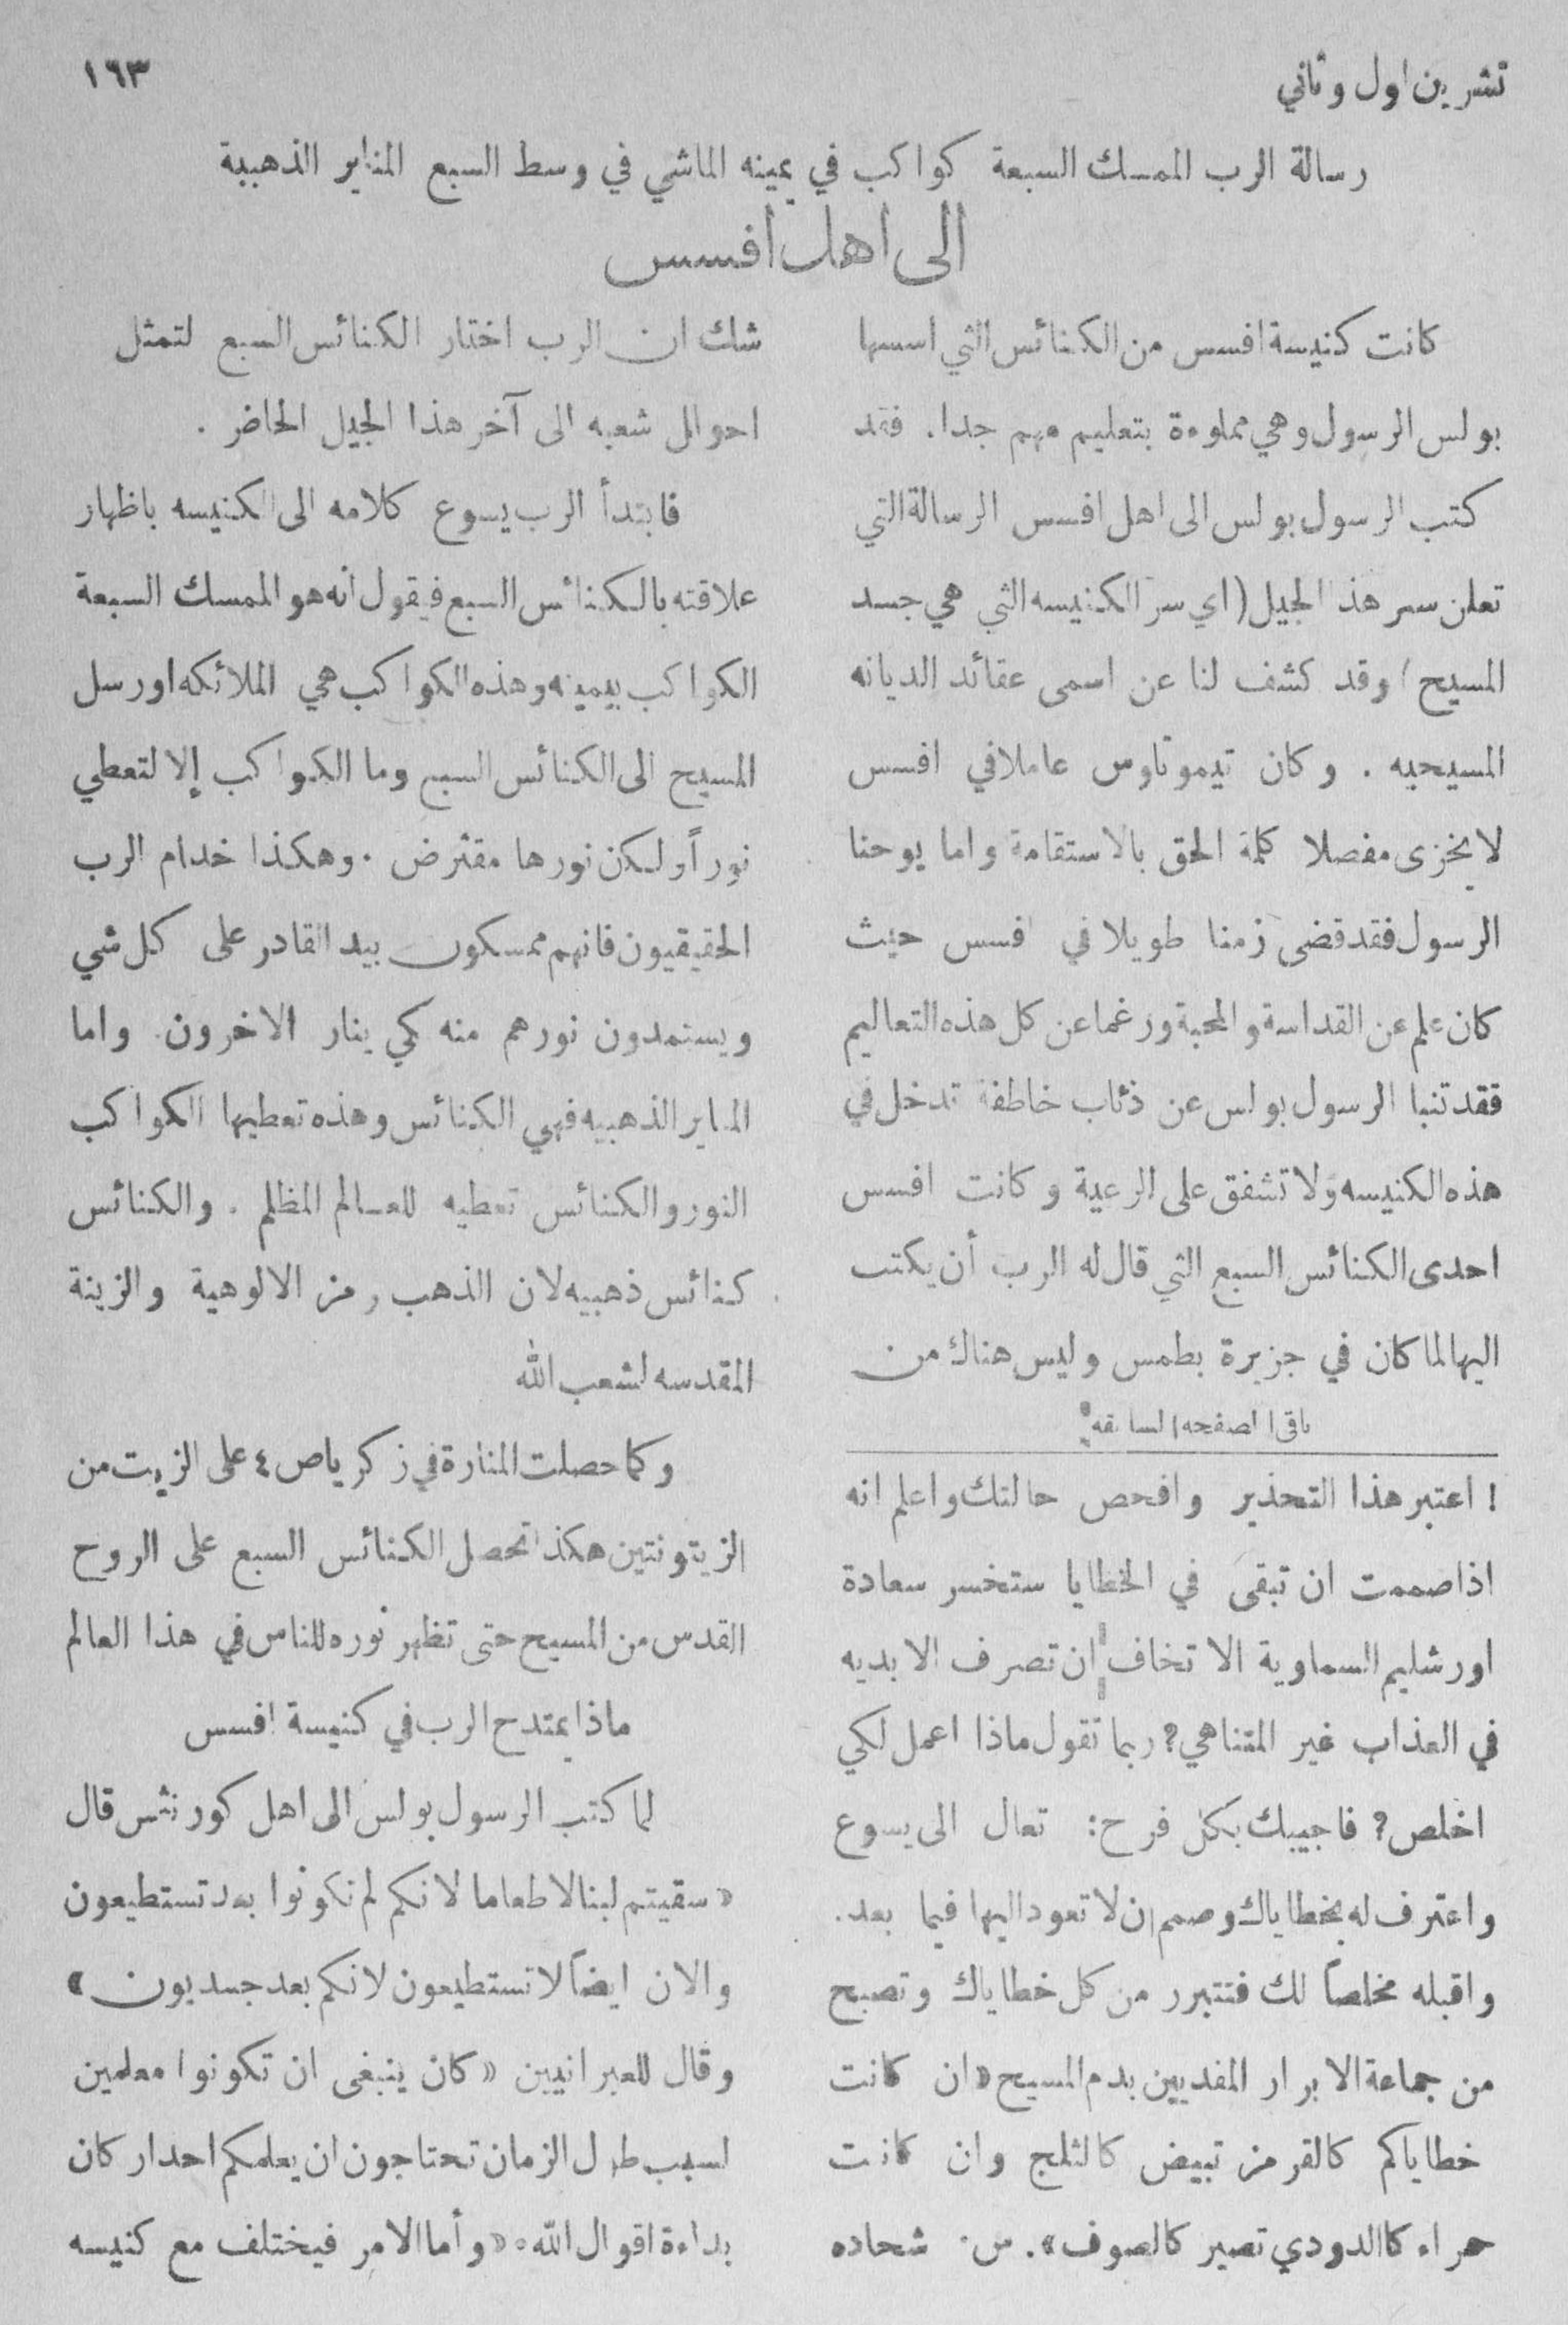 تشرين اول وثاني
١٦٣
رسالة الرب الممسك السبعة كواكب في يمينه الماشي في وسط السبع المناير الذهبية
الى اهل افسس
كانت كنيسة افسس من الكنائس التي اسسها
بولس الرسول وهي مملوءة بتعليم مهم جدا. فقد
كتب الرسول بولس الى اهل افسس الرسالة التي
تعلن سر هذ الجيل (اي سر الكنيسه التي هي جسد
المسيح) وقد كشف لنا عن اسمى عقائد الديانه
المسيحيه . وكان تيموثاوس عاملا في افسس
لا يخزى مفصلا كلمة الحق بالاستقامة واما يوحنا
الرسول فقد قضى زمنا طويلا في افسس حيث
كان علم عن القداسة والمحبة ورغما عن كل هذه التعاليم
فقد تنبا الرسول بولس عن ذئاب خاطفة تدخل في
هذه الكنيسه ولا تشفق على الرعية وكانت افسس
احدى الكنائس السبع التي قال له الرب أن يكتب
اليها لما كان في جزيرة بطمس وليس هناك من
باقي الصفحه السابقه
! اعتبر هذا التحذير وافحص حالتك واعلم انه
اذا صممت ان تبقى في الخطايا ستخسر سعادة
اورشليم السماوية الا تخاف ان تصرف الابديه
في العذاب غير المتناهي؟ ربما تقول ماذا اعمل لكي
اخلص؟ فاجيبك بكل فرح: تعال الى يسوع
واعترف له بخطاياك وصمم ان لا تعود اليها فيما بعد.
واقبله مخلصاً لك فتتبرر من كل خطاياك وتصبح
من جماعة الابرار المفديين بدم المسيح «ان كانت
خطاياكم كالقرمز تبيض كالثلج وان كانت
حمراء كاالدودي تصير كالصوف». س. شحاده
شك ان الرب اختار الكنائس السبع لتمثل
احوال شعبه الى آخر هذا الجيل الحاضر .
فابتدأ الرب يسوع كلامه الى الكنيسه باظهار
علاقته بالكنائس السبع فيقول انه هو الممسك السبعة
الكواكب بيمينه وهذه الكواكب هي الملائكه او رسل
المسيح الى الكنائس السبع وما الكواكب إلا لتعطي
نوراً ولكن نورها مقترض . وهكذا خدام الرب
الحقيقيون فانهم ممسكون بيد القادر على كل شي
ويستمدون نورهم منه كي ينار الاخرون. واما
المناير الذهبيه فهي الكنائس وهذه تعطيها الكواكب
النور والكنائس تعطيه للعالم المظلم . والكنائس
كنائس ذهبيه لان الذهب رمز الالوهية والزينة
المقدسه لشعب الله
وكما حصلت المنارة في زكريا ص ٤ على الزيت من
الزيتونتين هكذا تحصل الكنائس السبع على الروح
القدس من المسيح حتى تظهر نوره للناس في هذا العالم
ماذا يمتدح الرب في كنيسة افسس
لما كتب الرسول بولس الى اهل كورنثس قال
«سقيتم لبنا لا طعاما لانكم لم تكونوا بعد تستطيعون
والان ايضاً لا تستطيعون لانكم بعد جسديون»
وقال للعبرانيين «كان ينبغي ان تكونوا معلمين
لسبب طول الزمان تحتاجون ان يعلمكم احد اركان
بداءة اقوال الله» «وأما الامر فيختلف مع كنيسه